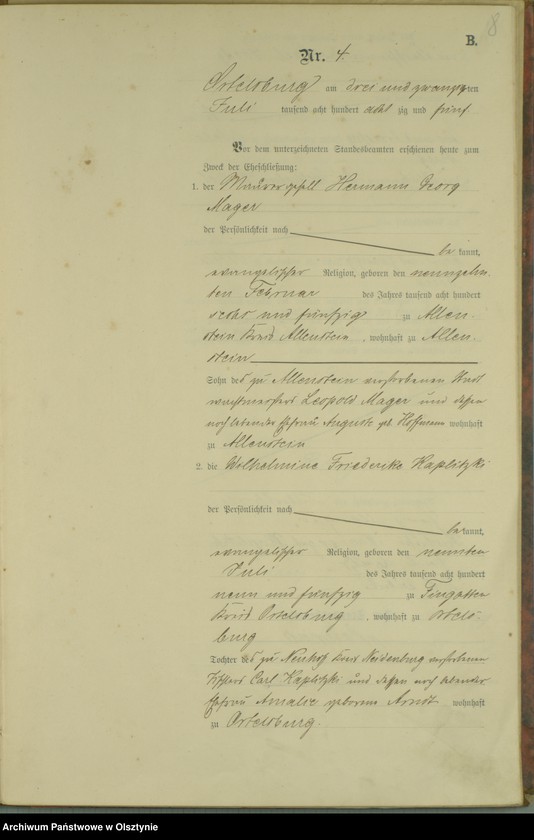 8
B.
Nr. 4.
Ortelsburg am drei und zwanzigsten
Juli tausend acht hundert achtzig und fünf
Vor dem unterzeichneten Standesbeamten erschienen heute zum
Zweck der Eheschließung:
1. der Maurergesell Hermann Georg
Mager
der Persönlichkeit nach
be kannt,
evangelischer Religion, geboren den neunzehn-
ten Februar des Jahres tausend acht hundert
sechs und fünfzig zu Allen-
stein Kreis Allenstein, wohnhaft zu Allen-
stein
Sohn des zu Allenstein verstorbenen
wachtmeisters Leopold Mager und dessen
noch lebender Ehefrau Auguste geb. Hoffmann wohnhaft
zu Allenstein
2. die Wilhelmine Friederike Kaplitzki
der Persönlichkeit nach
be kannt,
evangelischer Religion, geboren den neunten
Juli des Jahres tausend acht hundert
neun und fünfzig zu Fingatten
Kreis Ortelsburg, wohnhaft zu Ortels-
burg
Tochter des zu Neuhof Kreis Neidenburg verstorbenen
Carl Kaplitzki und dessen noch lebender
Ehefrau Amalie geborene Arndt wohnhaft
zu Ortelsburg.
Archiwum Państwowe w Olsztynie